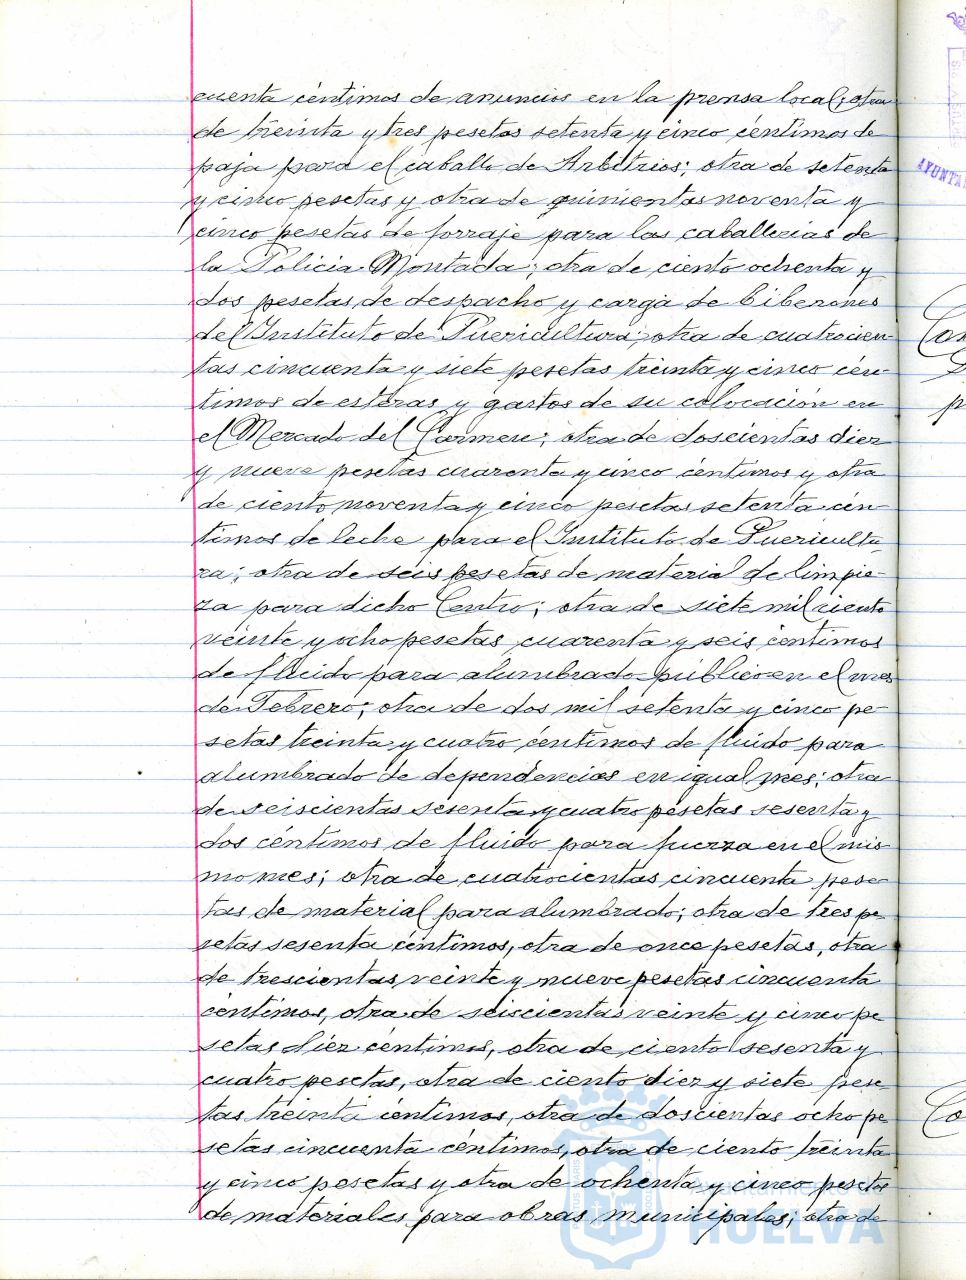 cuenta céntimos de anuncios en la prensa local; otra
de treinta y tres pesetas setenta y cinco céntimos de
paja para el caballo de Arbitrios; otra de setenta
y cinco pesetas y otra de quinientas noventa y
cinco pesetas de forraje para las caballerias de
la Policia Montada; otra de ciento ochenta y
dos pesetas de despacho y carga de biberones
del Instituto de Puericultura; otra de cuatrocien-
tas cincuenta y siete pesetas treinta y cinco cén-
timos de esteras y gastos de su colocación en
el Mercado del Carmen; otra de doscientas diez
y nueve pesetas cuarenta y cinco céntimos y otra
de ciento noventa y cinco pesetas setenta cén-
timos de leche para el Instituto de Puericultu-
ra; otra de seis pesetas de material de limpie-
za para dicho Centro; otra de siete mil ciento
veinte y ocho pesetas cuarenta y seis céntimos
de flúido para alumbrado público en el mes
de Febrero; otra de dos mil setenta y cinco pe-
setas treinta y cuatro céntimos de flúido para
alumbrado de dependencias en igual mes; otra
de seiscientas sesenta y cuatro pesetas sesenta y
dos céntimos de flúido para fuerza en el mis-
mo mes; otra de cuatrocientas cincuenta pese-
tas de material para alumbrado; otra de tres pe-
setas sesenta céntimos, otra de once pesetas, otra
de trescientas veinte y nueve pesetas cincuenta
céntimos, otra de seiscientas veinte y cinco pe-
setas diéz céntimos, otra de ciento sesenta y
cuatro pesetas, otra de ciento diez y siete pese-
tas treinta céntimos, otra de doscientas ocho pe-
setas cincuenta céntimos, otra de ciento treinta
y cinco pesetas y otra de ochenta y cinco pesetas
de materiales para obras municipales; otra de
Ayuntamiento de
HUELVA